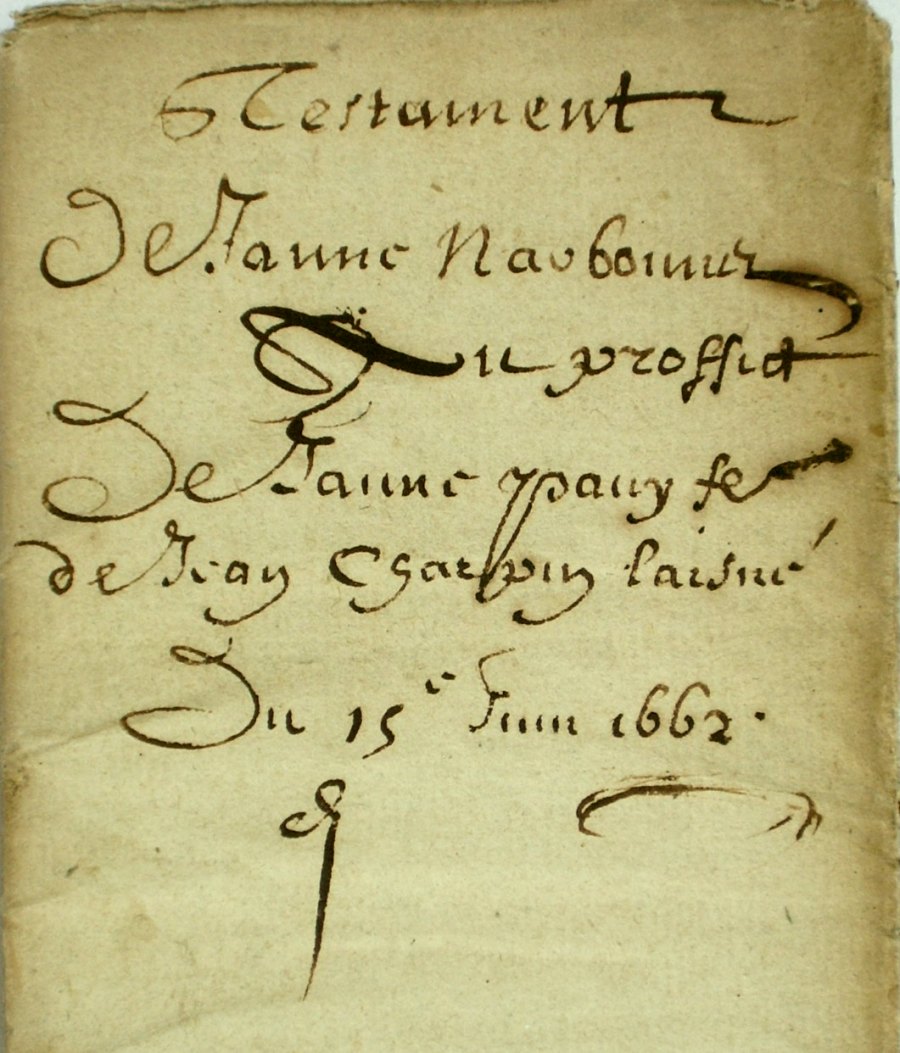 Testament
De Janne Narbonne
Au proffict
De Janne pauy fe
de Jean Charpin laisné
Du 15e Juin 1662.